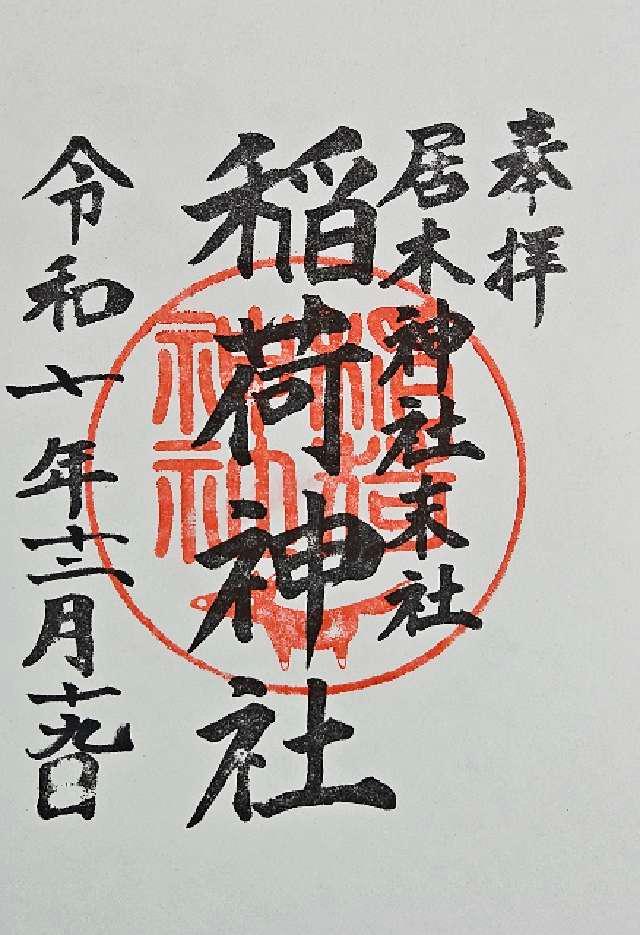 奉拝
居木神社末社
稲荷神社
令和七年十二月十九日
稲荷神社